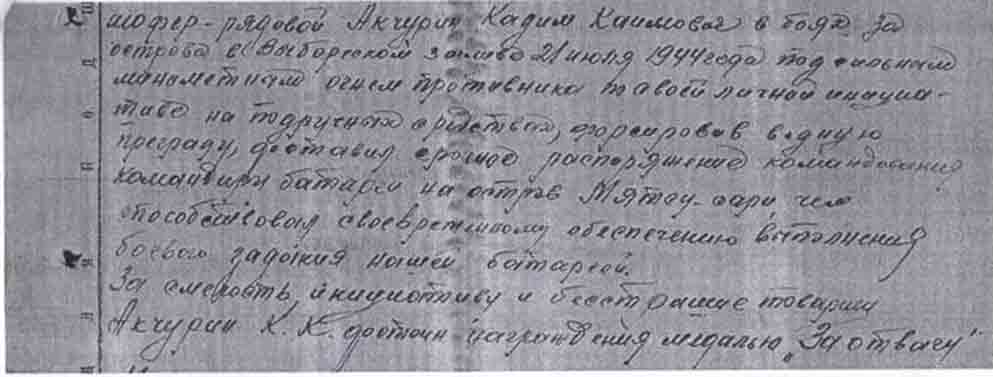 шофер-рядовой Акчурин Кадим Каимович в боях за
острова в Выборгском заливе 21 июля 1944 года под сильным
минометным огнем противника по своей личной инициа-
тиве на подручных средствах, форсировав водную
преграду, доставил срочное распоряжение командования
командиру батареи на остров Мятсу-сари чем
способствовал своевременному обеспечению выполнения
боевого задания нашей батареей.
За смелость, инициативу и бесстрашие товарищ
Акчурин К. К. достоин награждения медалью „За отвагу"